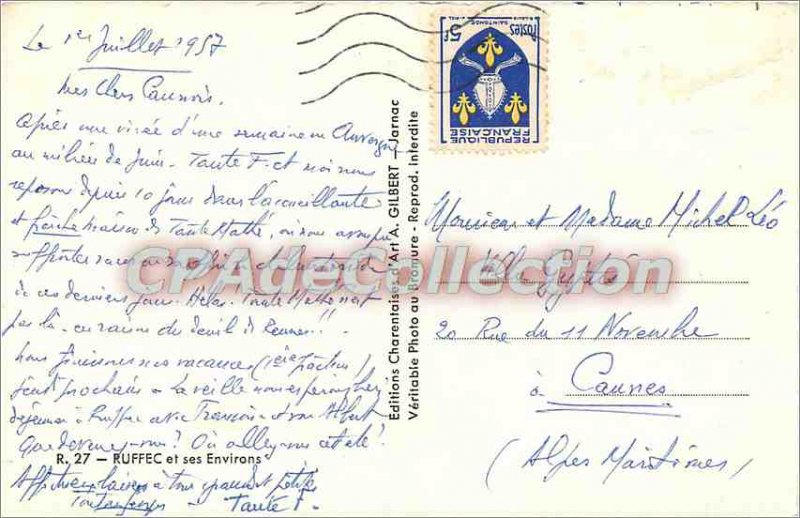 Le 1er Juillet 1957
Mes Chers Cannois.
Après une virée d'une semaine en Auvergne
au milieu de Juin. Tante F. et moi nous
reposons depuis 10 jours dans l'accueillante
et fraîche maison de Tante Mathé, où nous avons pu
supporter sans
de ces derniers jours. Hélas. Tante Mathé n'est
pas là, en raison du deuil à Rennes!!
Nous finissons nos vacances (1ère fraction)
prochain - La veille nous
déjeuner à Ruffec avec François et son Albert
Que devenez-vous? Où allez-vous cet été?
R. 27 — RUFFEC et ses Environs
Affectueux baisers à tous grands et petits
Tante F.
Editions Charentaises d'Art A. GILBERT — Jarnac
Véritable Photo au Bromure - Reprod. Interdite
5F
POSTES
SAINTONGE
REPUBLIQUE
FRANÇAISE
Monsieur et Madame Michel Léo
Villa
20 Rue du 11 Novembre
à Cannes
(Alpes Maritimes)
CPADeCollection